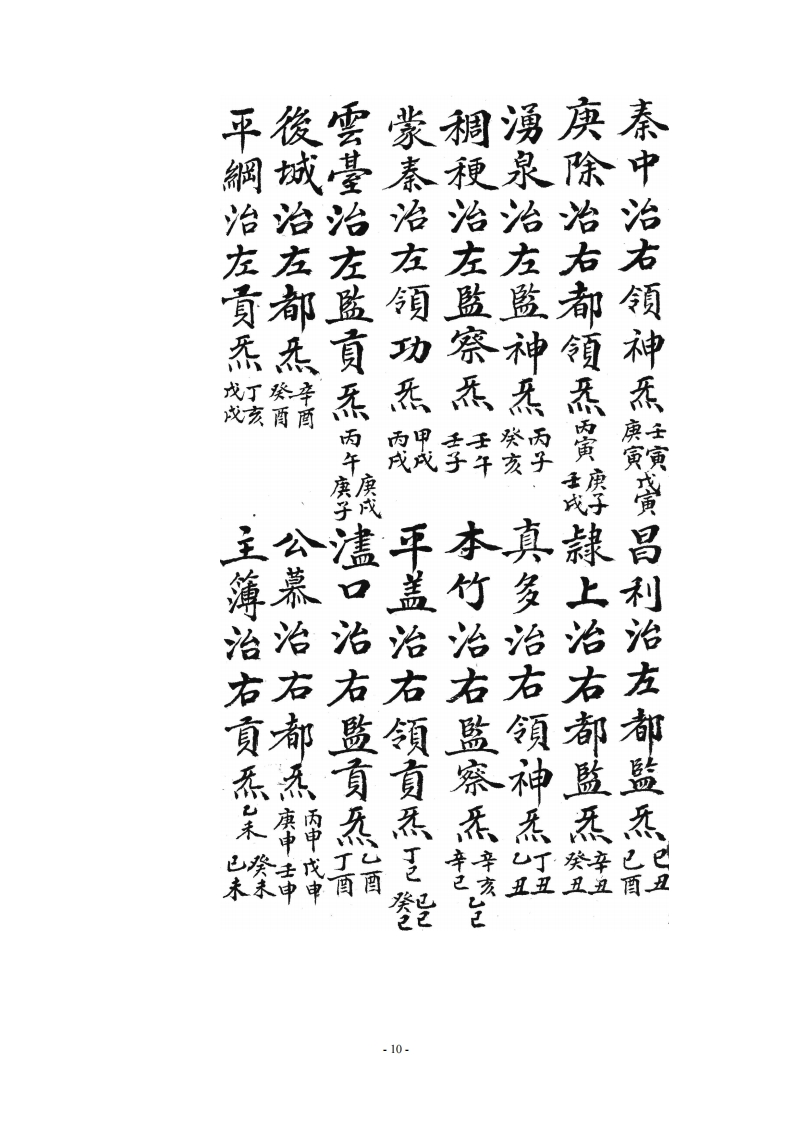 秦中治右領神炁 壬寅 庚寅 戊寅 昌利治左都監炁 己丑 己酉
庚除治右都領炁 丙寅 庚子 壬戌 隷上治右都監炁 辛丑 癸丑
湧泉治左監神炁 丙子 癸亥 真多治右領神炁 丁丑 乙丑
稠稉治左監察炁 壬午 壬子 本竹治右監察炁 辛亥 辛巳 乙巳
蒙秦治左領功炁 甲戌 丙戌 平盖治右領貢炁 丁巳 己巳 癸巳
雲臺治左監貢炁 丙午 庚戌 庚子 濜口治右監貢炁 乙酉 丁酉
後城治左都炁 辛酉 癸酉 公慕治右都炁 丙申 戊申 庚申 壬申
平綱治左貢炁 丁亥 戊戌 主簿治右貢炁 乙未 癸未 己未
- 10 -